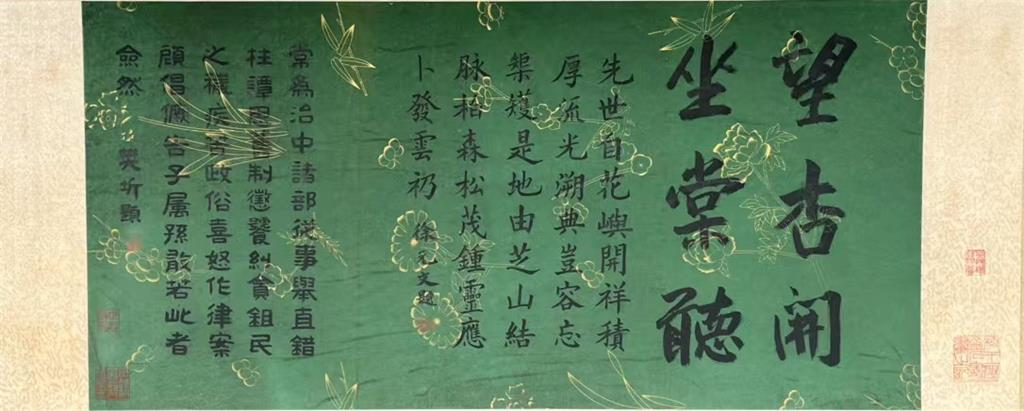 望杏開
坐棠聽
先世自花嶼開祥積
厚流光溯典豈容忘
榘矱是地由芝山結
脉柏森松茂鍾靈應
卜發雲礽 徐元文題
常為治中諸部從事舉直錯
枉譚思舊制懲饕糾貪鉏民
之穢疾苦政俗喜怒作律案
顧倡告子屬孫敢若此者
僉然